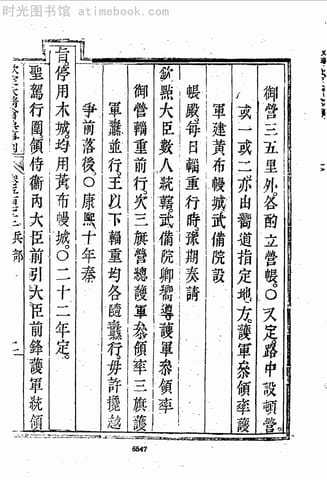 时光图书馆 atimebook.com
御營三五里外各酌立營帳。〇又定路中設頓營。
或一或二亦由嚮道指定地方。護軍叅領率護
軍建黃布幔城武備院設
帳殿。每日輜重行時。豫期奏請
欽點大臣數人統轄。武備院卿嚮導護軍叅領率
御營輜重前行。次三旗營總護軍叅領率三旗護
軍纛並行。王以下輜重均各隨纛行。毋許攙越
爭前落後。〇康熙十年奏
旨停用木城。均用黃布幔城。〇二十二年定。
聖駕行圍。領侍衞內大臣前引大臣前鋒護軍統領
兵部
6547